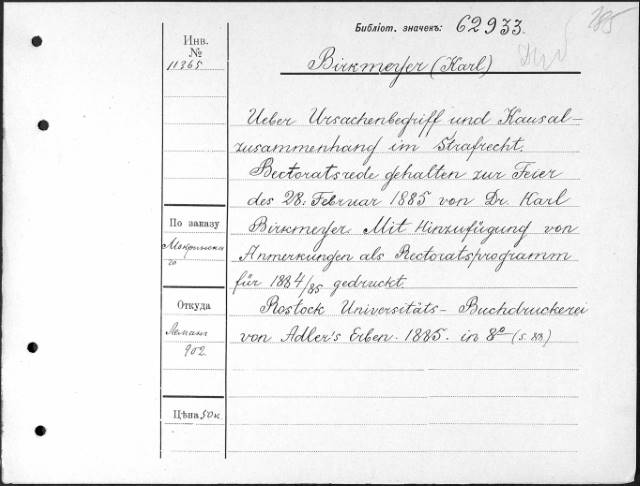 Библіот. значекъ: 62933.
Инв.
№
11365
Birkmeyer (Karl)
Ueber Ursachenbegriff und Kausal-
zusammenhang im Strafrecht.
Rectoratsrede gehalten zur Feier
des 28. Februar 1885 von Dr. Karl
Birkmeyer. Mit Hinzufügung von
Anmerkungen als Rectoratsprogramm
für 1884/85 gedruckt.
Rostock Universitäts- Buchdruckerei
von Adler's Erben. 1885. in 8º (S. 88)
По заказу
Мокринска
го
Откуда
Леманъ
902
Цѣна 50 к.